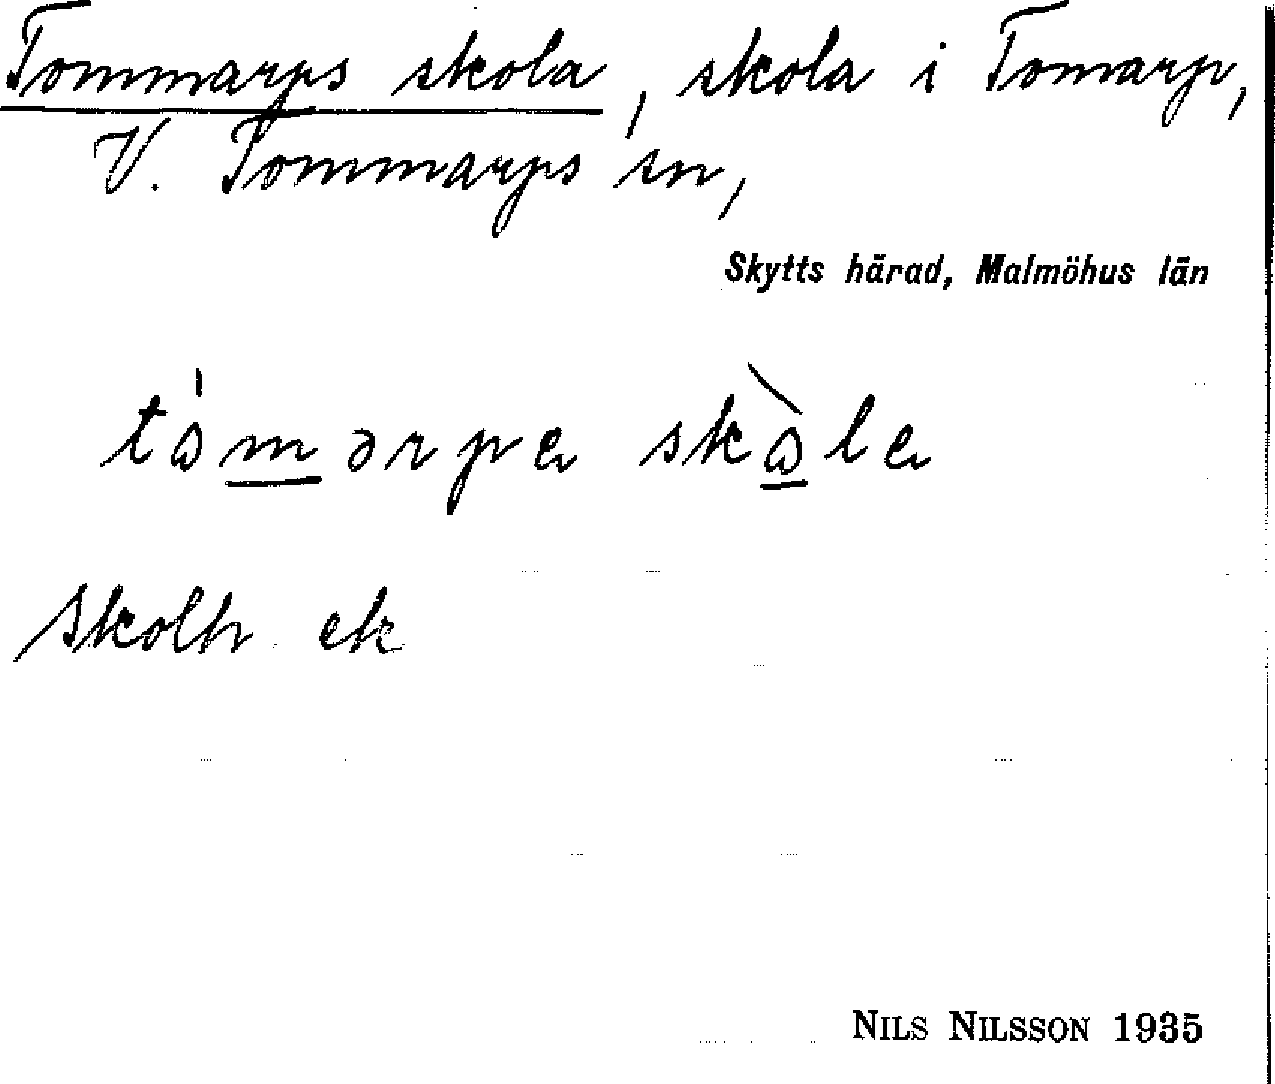 Tommarps skola, skola i Tomarp,
V. Tommarps sn,
Skytts härad, Malmöhus län
tåmərpa skåla
Skolh ek
NILS NILSSON 1935